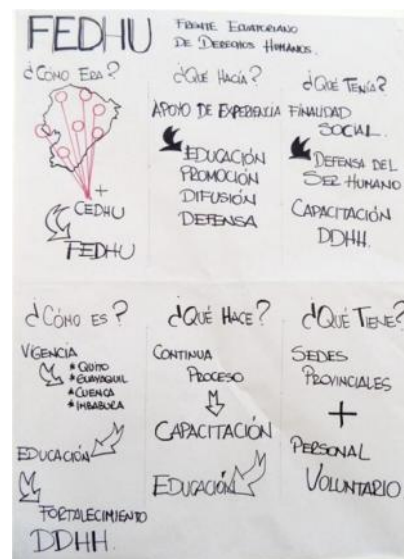 FEDHU
FRENTE ECUATORIANO
DE DERECHOS HUMANOS.
¿CÓMO ERA?
+
CEDHU
FEDHU
¿QUÉ HACÍA?
APOYO DE EXPERIENCIA
EDUCACIÓN
PROMOCIÓN
DIFUSIÓN
DEFENSA
¿QUÉ TENÍA?
FINALIDAD
SOCIAL.
DEFENSA DEL
SER HUMANO
CAPACITACIÓN
DDHH.
¿CÓMO ES?
VIGENCIA
* QUITO
* GUAYAQUIL
* CUENCA
* IMBABURA
EDUCACIÓN
FORTALECIMIENTO
DDHH.
¿QUÉ HACE?
CONTINUA
PROCESO
CAPACITACIÓN
EDUCACIÓN
¿QUÉ TIENE?
SEDES
PROVINCIALES
+
PERSONAL
VOLUNTARIO